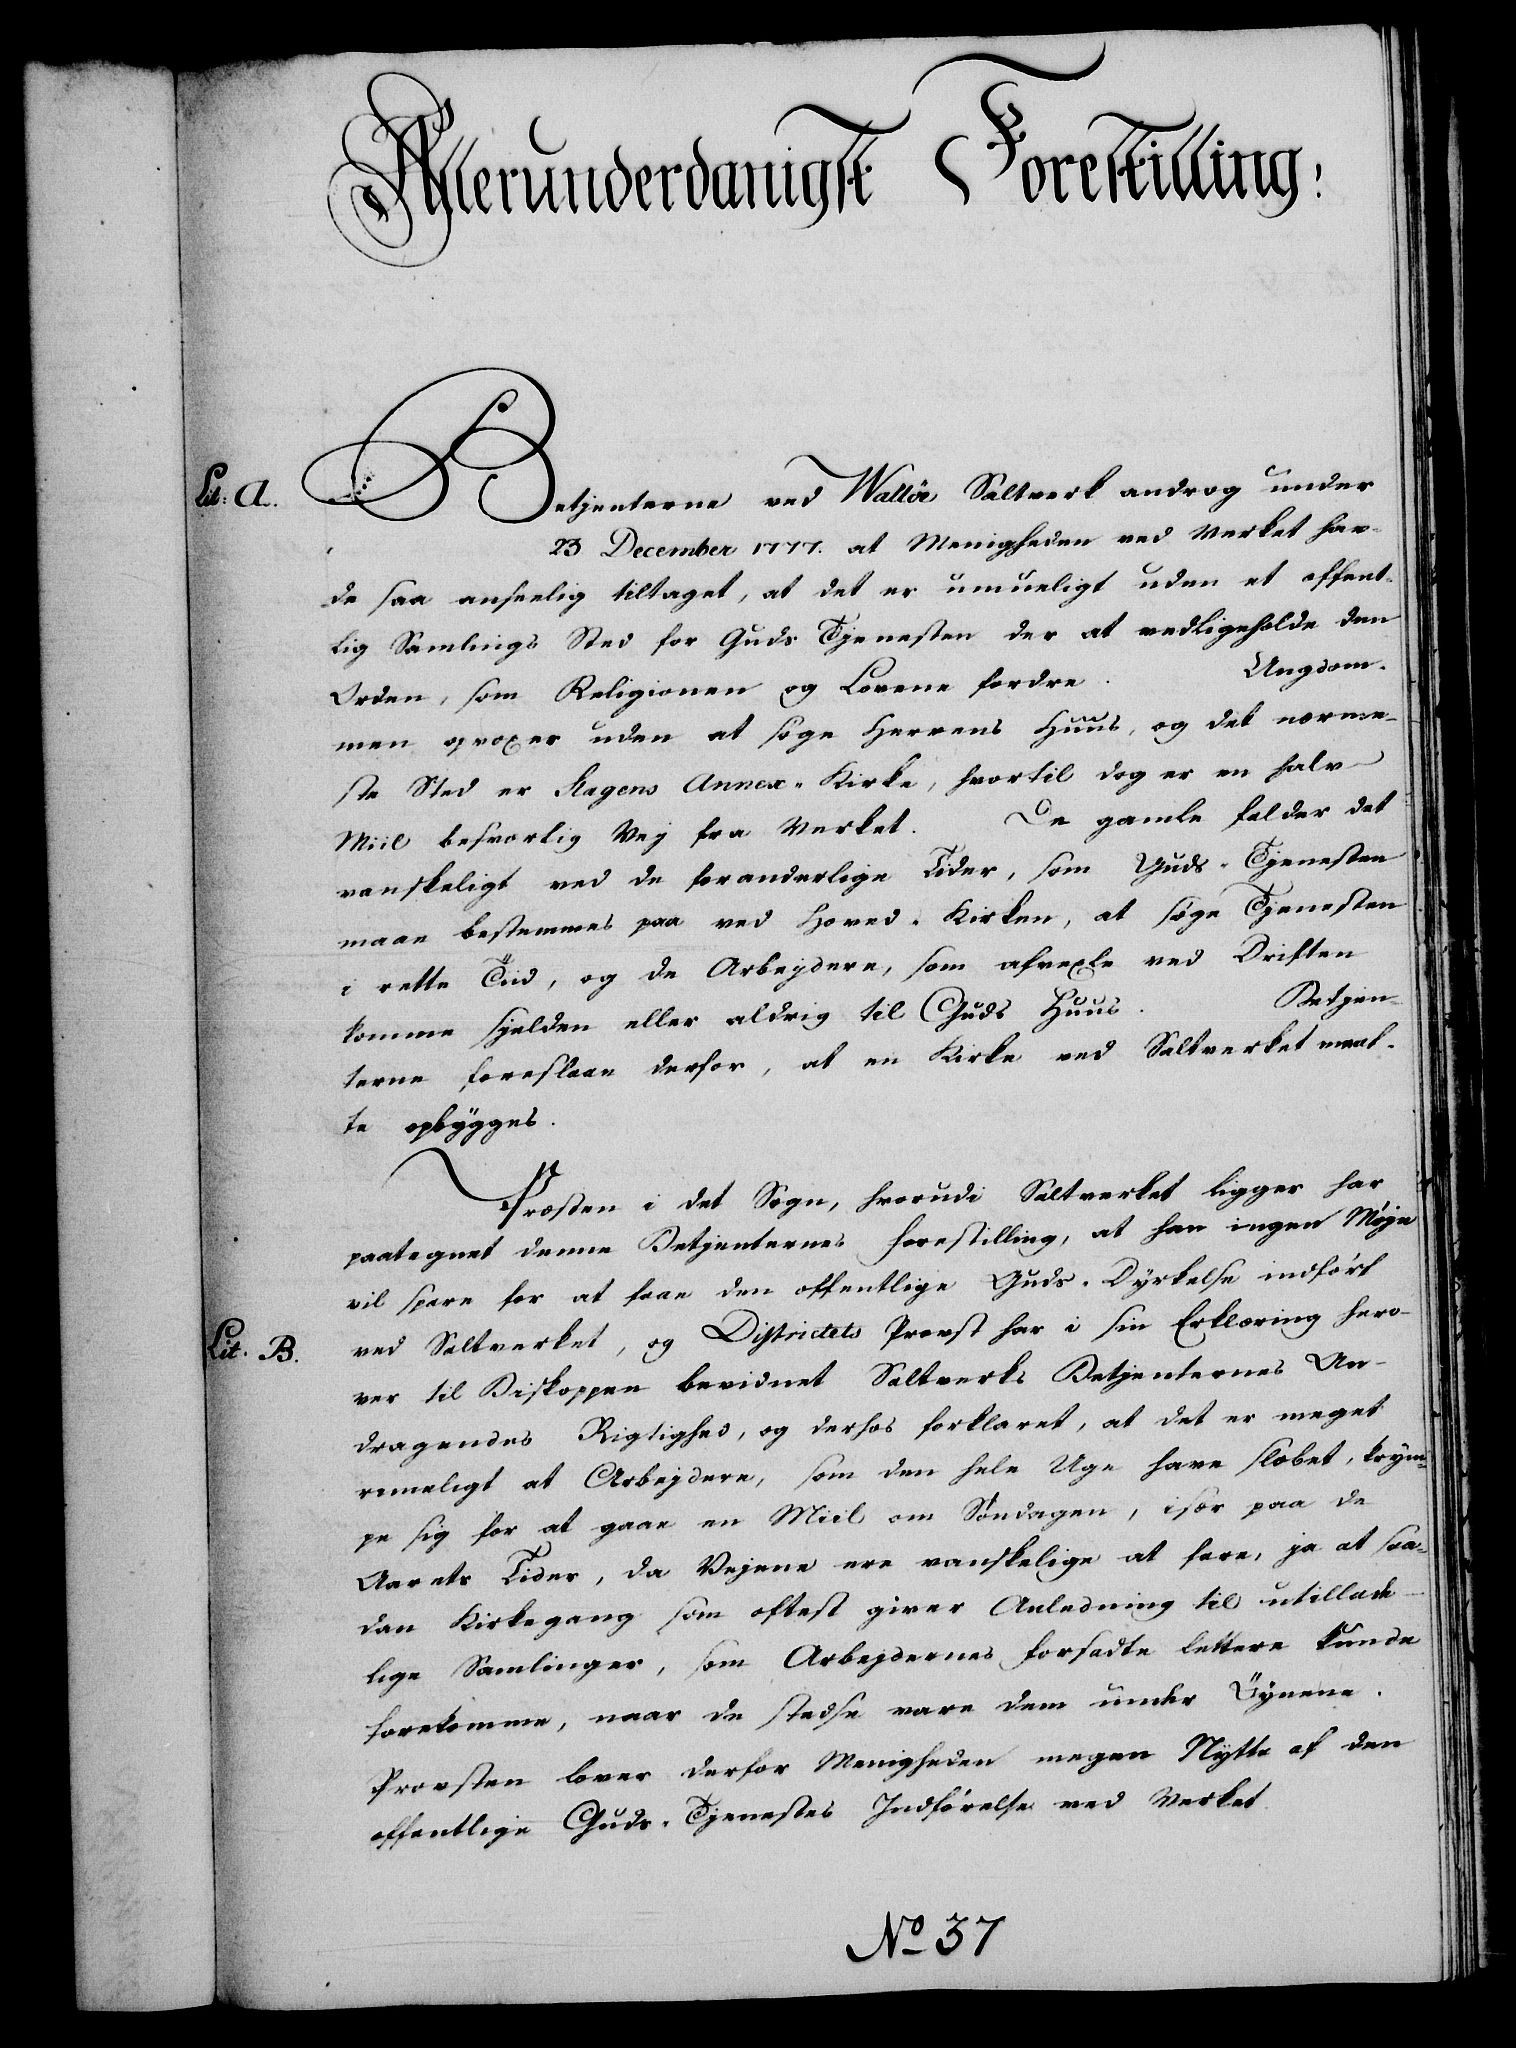 Allerunderdanigst Forestilling:
Lit: A.
Betjenterne ved Walløe Saltverk androg under
23 December 1777. at Menigheden ved Verket hav-
de saa anseelig tiltaget, at det er umueligt uden et offent-
lig Samlings Sted for Guds Tjenesten der at vedligeholde den
Orden, som Religionen og Lovene fordre. Ungdom-
men opvoxer uden at søge Herrens Huus, og det nærme-
ste Sted er Slagens Annex-Kirke, hvortil dog er en halv
Miil besværlig Vej fra Verket. De gamle falder det
vanskeligt ved de foranderlige Tider, som Guds-Tjenesten
maae bestemmes paa ved Hoved-Kirken, at søge Tjenesten
i rette Tiid, og de Arbejdere, som afvexle ved Driften
komme sjelden eller aldrig til Guds Huus. Betjen-
terne foreslaae derfor, at en Kirke ved Saltverket maat-
te opbygges.
Præsten i det Sogn, hvorudi Saltverket ligger har
paategnet denne Betjenternes Forestilling, at han ingen Møje
vil spare for at faae den offentlige Guds-Dyrkelse indført
Lit. B.
ved Saltverket, og Districtets Provst har i sin Erklæring hero-
ver til Biskoppen bevidnet Saltverks Betjenternes An-
dragendes Rigtighed, og derhos forklaret, at det er meget
rimeligt at Arbejdere, som den hele Uge have slæbet, krym-
pe sig for at gaae en Miil om Søndagen, især paa de
Aarets Tider, da Vejene ere vanskelige at fare, ja at saa-
dan Kirkegang som oftest giver Anledning til utillade-
lige Samlinger, som Arbejdernes Forsadte lettere kunde
forekomme, naar de stedse vare dem under Øynene.
Provsten lover derfor Menigheden megen Nytte af den
offentlige Guds-Tjenestes Indførelse ved Verket.
No 37